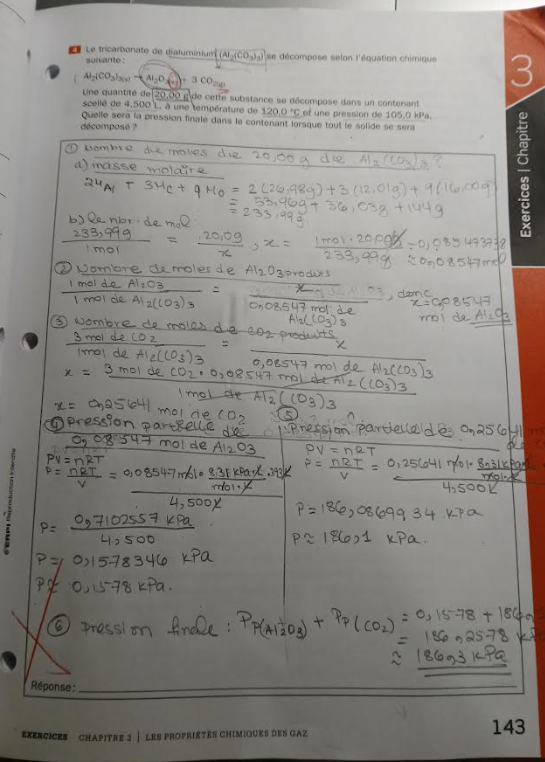 4 Le tricarbonate de dialuminium (Al2(CO3)3) se décompose selon l'équation chimique
suivante :
Al2(CO3)3(s) → Al2O3(s) + 3 CO2(g)
Une quantité de 20,00 g de cette substance se décompose dans un contenant
scellé de 4,500 L, à une température de 120,0 °C et une pression de 105,0 kPa.
Quelle sera la pression finale dans le contenant lorsque tout le solide se sera
décomposé ?
3
Exercices | Chapitre
① Nombre de moles de 20,00g de Al2(CO3)3 ?
a) masse molaire
2 MAl + 3MC + 9 MO = 2(26,98g) + 3(12,01g) + 9(16,00g)
= 53,96g + 36,03g + 144g
= 233,99g
b) le nbr. de mol
233,99g / 1mol = 20,0g / x , x = 1mol · 20,00g / 233,99g = 0,085473738
≈ 0,08547mol
② Nombre de moles de Al2O3 produits
1 mol de Al2O3 / 1 mol de Al2(CO3)3 = x / 0,08547 mol de Al2(CO3)3 , donc x = 0,08547 mol de Al2O3
③ Nombre de moles de CO2 produits
3 mol de CO2 / 1mol de Al2(CO3)3 = x / 0,08547 mol de Al2(CO3)3
x = 3 mol de CO2 · 0,08547 mol de Al2(CO3)3 / 1 mol de Al2(CO3)3
x = 0,25641 mol de CO2
④ Pression partielle de
0,08547 mol de Al2O3
PV = nRT
P = nRT / V = 0,08547 mol · 8,31 kPa·L / mol·K / 4,500L
P = 0,7102557 kPa / 4,500
P = 0,1578346 kPa
P ≈ 0,1578 kPa.
⑤
Pression partielle de 0,25641
PV = nRT
P = nRT / V = 0,25641 mol · 8,31 kPa / mol·K / 4,500L
P = 186,0869934 kPa
P ≈ 186,1 kPa.
⑥ Pression finale : PP(Al2O3) + PP(CO2) = 0,1578 + 186,
= 186,2578 kPa
≈ 186,3 kPa
Réponse :
©ERPI Reproduction interdite
EXERCICES CHAPITRE 3 | LES PROPRIÉTÉS CHIMIQUES DES GAZ
143